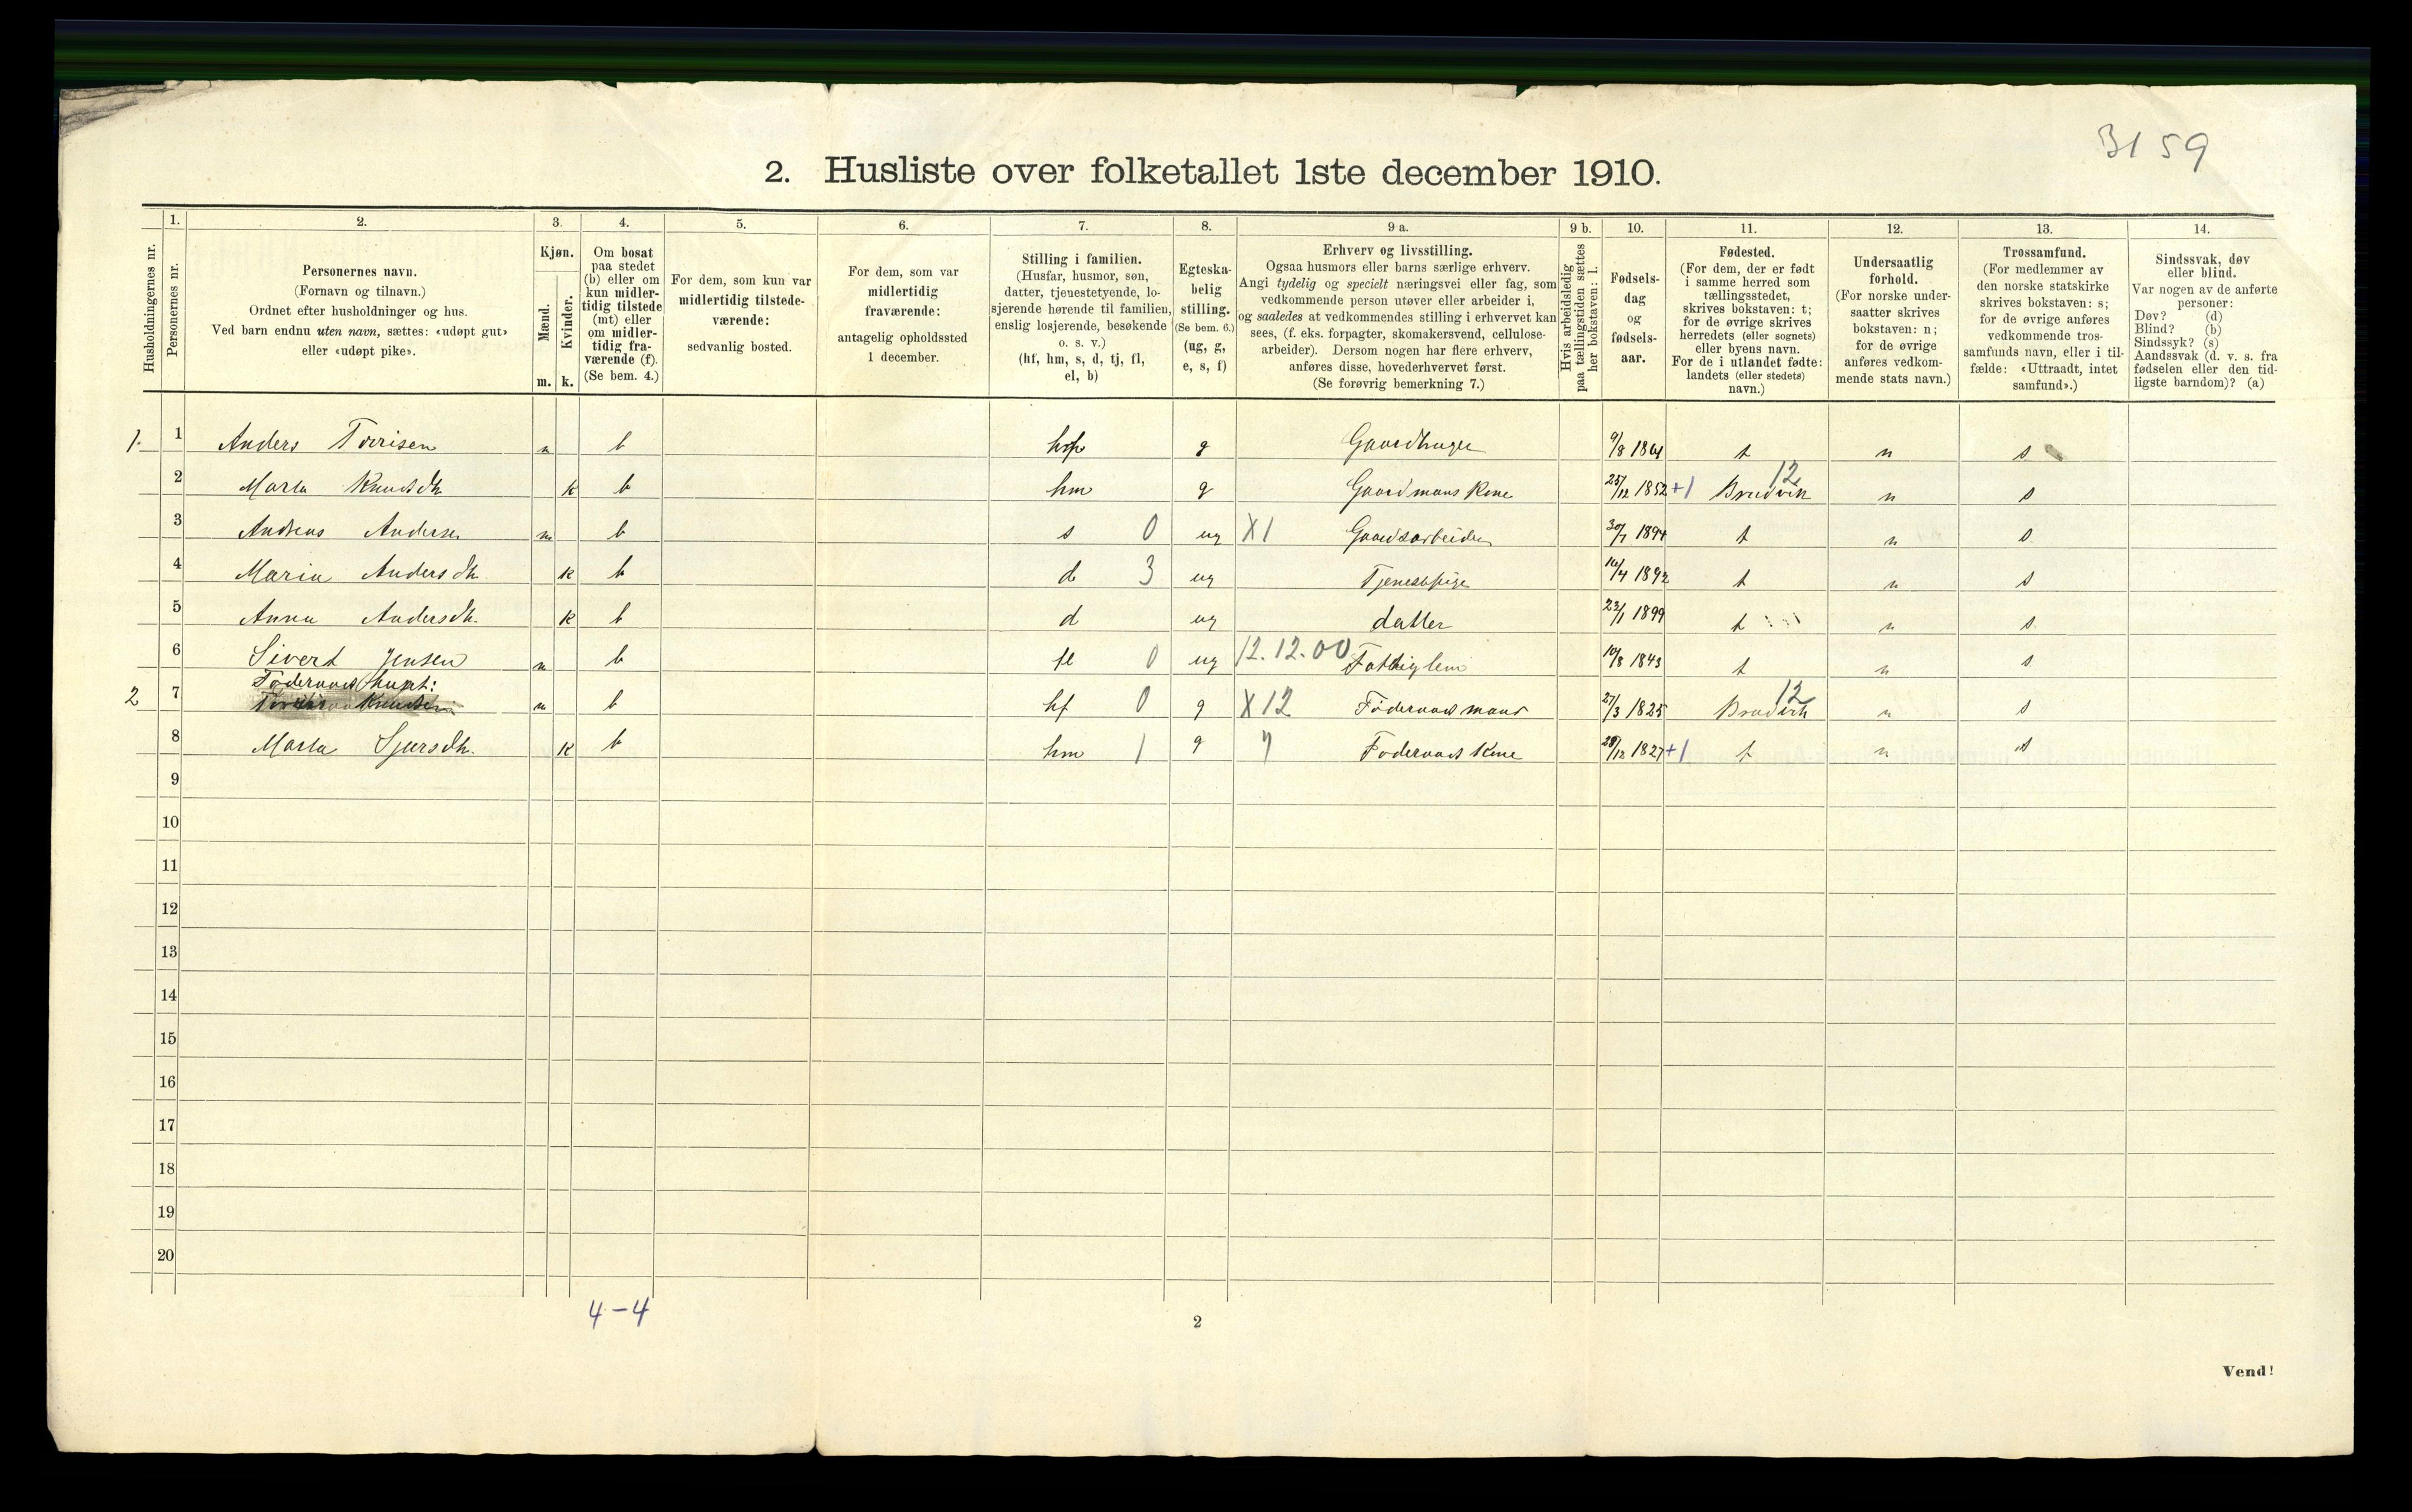 3159
2. Husliste over folketallet 1ste december 1910.
Husholdningernes nr.
1.
Personernes nr.
2.
Personernes navn.
(Fornavn og tilnavn.)
Ordnet efter husholdninger og hus.
Ved barn endnu uten navn, sættes: «udøpt gut»
eller «udøpt pike».
3.
Kjøn.
Mænd.
Kvinder.
m. k.
4.
Om bosat
paa stedet
(b) eller om
kun midler-
tidig tilstede
(mt) eller
om midler-
tidig fra-
værende (f).
(Se bem. 4.)
5.
For dem, som kun var
midlertidig tilstede-
værende:
sedvanlig bosted.
6.
For dem, som var
midlertidig
fraværende:
antagelig opholdssted
1 december.
7.
Stilling i familien.
(Husfar, husmor, søn,
datter, tjenestetyende, lo-
sjerende hørende til familien,
enslig losjerende, besøkende
o. s. v.)
(hf, hm, s, d, tj, fl,
el, b)
8.
Egteska-
belig
stilling.
(Se bem. 6.)
(ug, g,
e, s, f)
9 a.
Erhverv og livsstilling.
Ogsaa husmors eller barns særlige erhverv.
Angi tydelig og specielt næringsvei eller fag, som
vedkommende person utøver eller arbeider i,
og saaledes at vedkommendes stilling i erhvervet kan
sees, (f. eks. forpagter, skomakersvend, cellulose-
arbeider). Dersom nogen har flere erhverv,
anføres disse, hovederhvervet først.
(Se forøvrig bemerkning 7.)
9 b.
Hvis arbeidsledig
paa tællingstiden sættes
her bokstaven: l.
10.
Fødsels-
dag
og
fødsels-
aar.
11.
Fødested.
(For dem, der er født
i samme herred som
tællingsstedet,
skrives bokstaven: t;
for de øvrige skrives
herredets (eller sognets)
eller byens navn.
For de i utlandet fødte:
landets (eller stedets)
navn.)
12.
Undersaatlig
forhold.
(For norske under-
saatter skrives
bokstaven: n;
for de øvrige
anføres vedkom-
mende stats navn.)
13.
Trossamfund.
(For medlemmer av
den norske statskirke
skrives bokstaven: s;
for de øvrige anføres
vedkommende tros-
samfunds navn, eller i til-
fælde: «Uttraadt, intet
samfund».)
14.
Sindssvak, døv
eller blind.
Var nogen av de anførte
personer:
Døv? (d)
Blind? (b)
Sindssyk? (s)
Aandssvak (d. v. s. fra
fødselen eller den tid-
ligste barndom)? (a)
1. 1 Anders Torrisen m b hf g Gaardbruger 9/8 1861 t n s
2 Marta Knudsdtr k b hm g Gaardmans Kone 25/12 1852 +1 Bruvik 12 n s
3 Andreas Andersen m b s 0 ug X1 Gaardsarbeider 30/7 1894 t n s
4 Maria Andersdtr k b d 3 ug Tjenestpige 10/4 1892 t n s
5 Anna Andersdtr. k b d ug datter 23/1 1899 t n s
6 Sivert Jensen m b fl 0 ug 12.12.00 Fattiglem 10/8 1843 t n s
Føderaadshuset:
2 7 Knudsen m b hf 0 g X12 Føderaadsmand 27/3 1825 Bruvik 12 n s
8 Marta Sjursdtr. k b hm 1 g 7 Føderaads Kone 28/12 1827 +1 t n s
9
10
11
12
13
14
15
16
17
18
19
20
4-4
2
Vend!